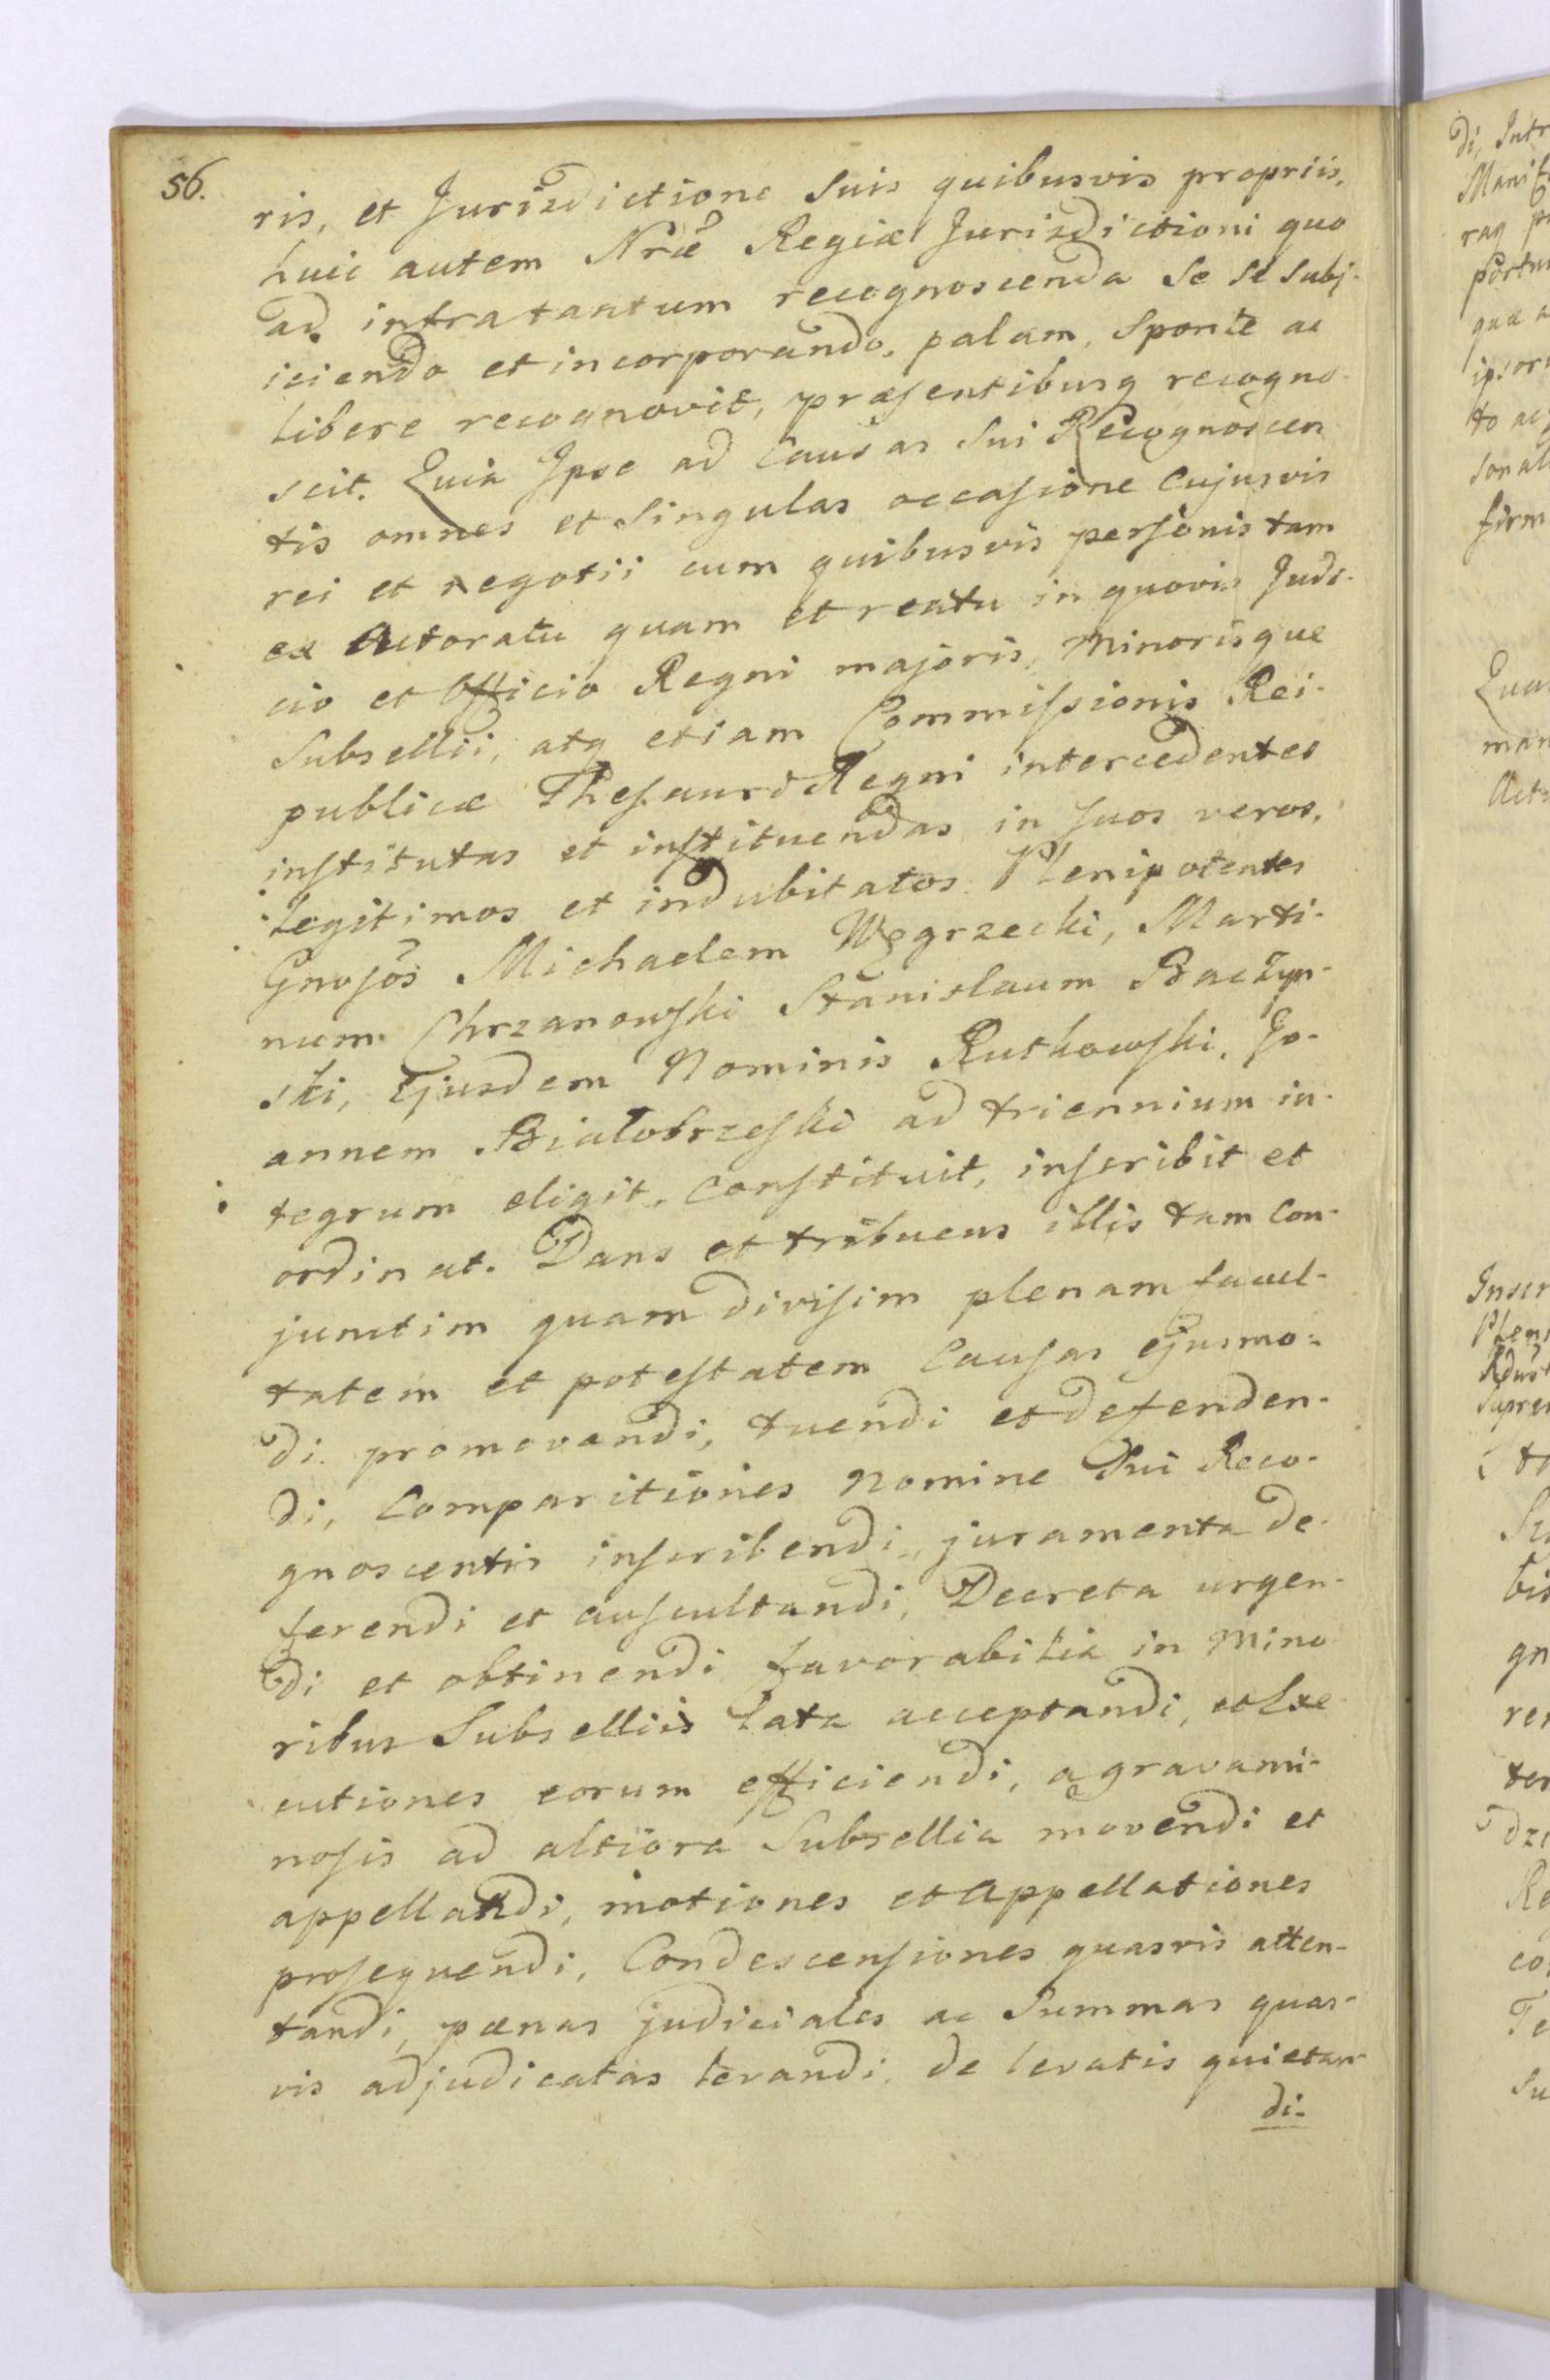 56.
ris, et Jurisdictione Suis quibusvis propriis,
huic autem Nræ Regiæ Jurisdictioni quo
ad infratantum recognoscenda Se Se Subj-
iciendo et incorporando, palam, Sponte ac
libere recognovit, præsentibusq recogno-
scit. Quia Ipse ad Causas Sui Recognoscen
tis omnes et Singulas occasione Cujusvis
rei et negotii cum quibusvis personis tam
ex Actoratu quam et reatu in quovis Judi-
cio et Officio Regni majoris, Minorisque
Subsellii, atq etiam Commissionis Rei-
publicæ Thesauri Regni intercedentes
institutas et instituendas in Suos veros,
Legitimos et indubitatos Plenipotentes
Gnosos Michaelem Węgrzecki, Marti-
num Chrzanowski Stanislaum Baczyn-
ski, Ejusdem Nominis Rutkowski, Jo-
annem Białobrzeski ad triennium in-
tegrum eligit, Constituit, inscribit et
ordinat. Dans et tribuens illis tam Con-
junctim quam divisim plenam facul-
tatem et potestatem Causas ejusmo-
di promovendi, tuendi et defenden-
di, Comparitiones Nomine Sui Reco-
gnoscentis inscribendi, juramenta de-
ferendi et auscultandi, Decreta urgen-
di et obtinendi favorabilia in Mino
ribus Subselliis lata acceptandi, et Exe
cutiones eorum efficiendi, a gravami-
nosis ad altiora Subsellia movendi et
appellandi, motiones et Appellationes
prosequendi, Condescensiones quasvis atten-
tandi, pænas judiciales ac Summas quas-
vis adjudicatas levandi, de levatis quietan-
di-
di, Intr
Mani
raq
portun
quæ a
ipsor
to ac
sonal
firm
Qua
man
Act
Inscr
Plen
Supre
gn
ter
Re
co
Te
Su